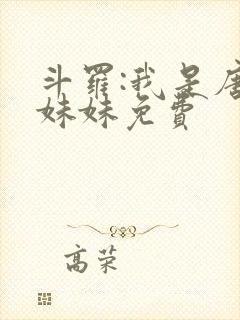 斗罗:我是唐
妹妹免费
高荣